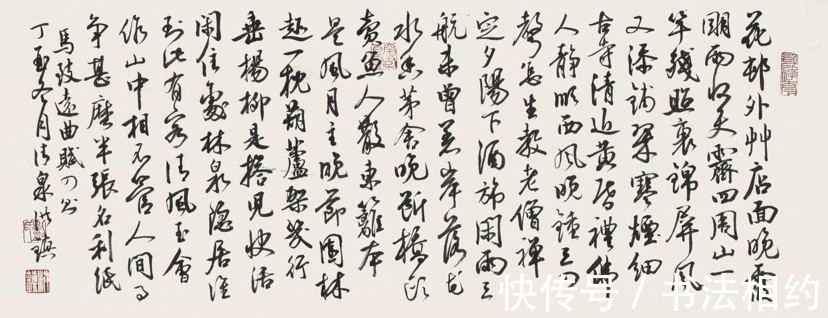 花邨外艸店西晚霞
明雨收天霽四围山一
竿殘照裏錦屏風
又添鋪翠寒煙細
古寺清近黃昏禮佛
人靜順西風晚鐘三四
聲怎生教老僧禪
定夕陽下酒旆閑兩三
航未曾着岸落花
水香茅舍晚斷橋頭
賣魚人散東籬本
是風月主晚節園林
趣一枕葫蘆架幾行
垂楊柳是搭兒快活
閑住處林泉隱居誰
到此有客清風至會
作山中相不管人間事
争甚麼半張名利紙
馬致遠曲賦
丁亥冬月清泉
快传号 / 书法相约